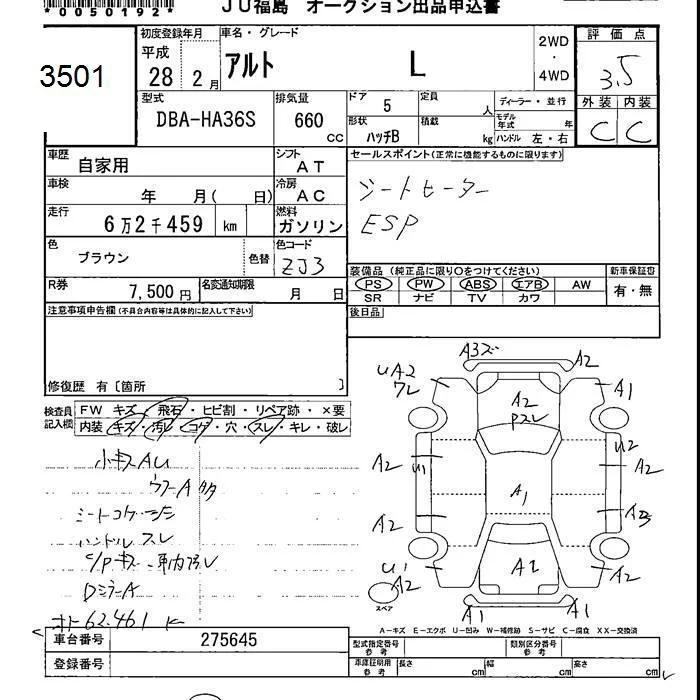 *0050192*
JU福島 オークション出品申込書
3501
初度登録年月 車名・グレード 2WD・4WD 評価点
平成28 2月 アルト L 3.5
外装 内装
C C
型式 排気量 ドア 定員 ディーラー・並行
DBA-HA36S 660 CC 5 人
形状 積載 モデル年式 年
ハッチB kg ハンドル 左・右
車歴 自家用 シフト AT セールスポイント(正常に機能するものに限ります)
車検 年 月( 日) 冷房 AC シートヒーター
走行 6万2千459 km 燃料 ガソリン ESP
色 ブラウン 色替 色コード ZJ3
装備品(純正品に限り○をつけてください) 新車保証書
R券 7,500円 名変通知期限 月 日 PS PW ABS エアB AW 有・無
SR ナビ TV カワ
注意事項申告欄(不具合内容等は具体的に記入して下さい) 後日品
修復歴 有〔箇所 〕
検査員記入欄 FW キズ・飛石・ヒビ割・リペア跡・×要
内装 キズ・汚レ・コゲ・穴・スレ・キレ・破レ
小キズAU
シートコゲ
ハンドル スレ
C/Pキズ
DミラーA
62.461 K
A3 A2
UA2 A2 A1
A2 U1 U2 A2
A1
A2
U1 A2 A1 A2
スペア A1 A1
A-キズ E-エクボ U-凹み W-補修跡 S-サビ C-腐食 XX-交換済
車台番号 275645 型式指定番号 参考 類別区分番号 参考
登録番号 車庫証明用 参考 長さ cm 幅 cm 高さ cm